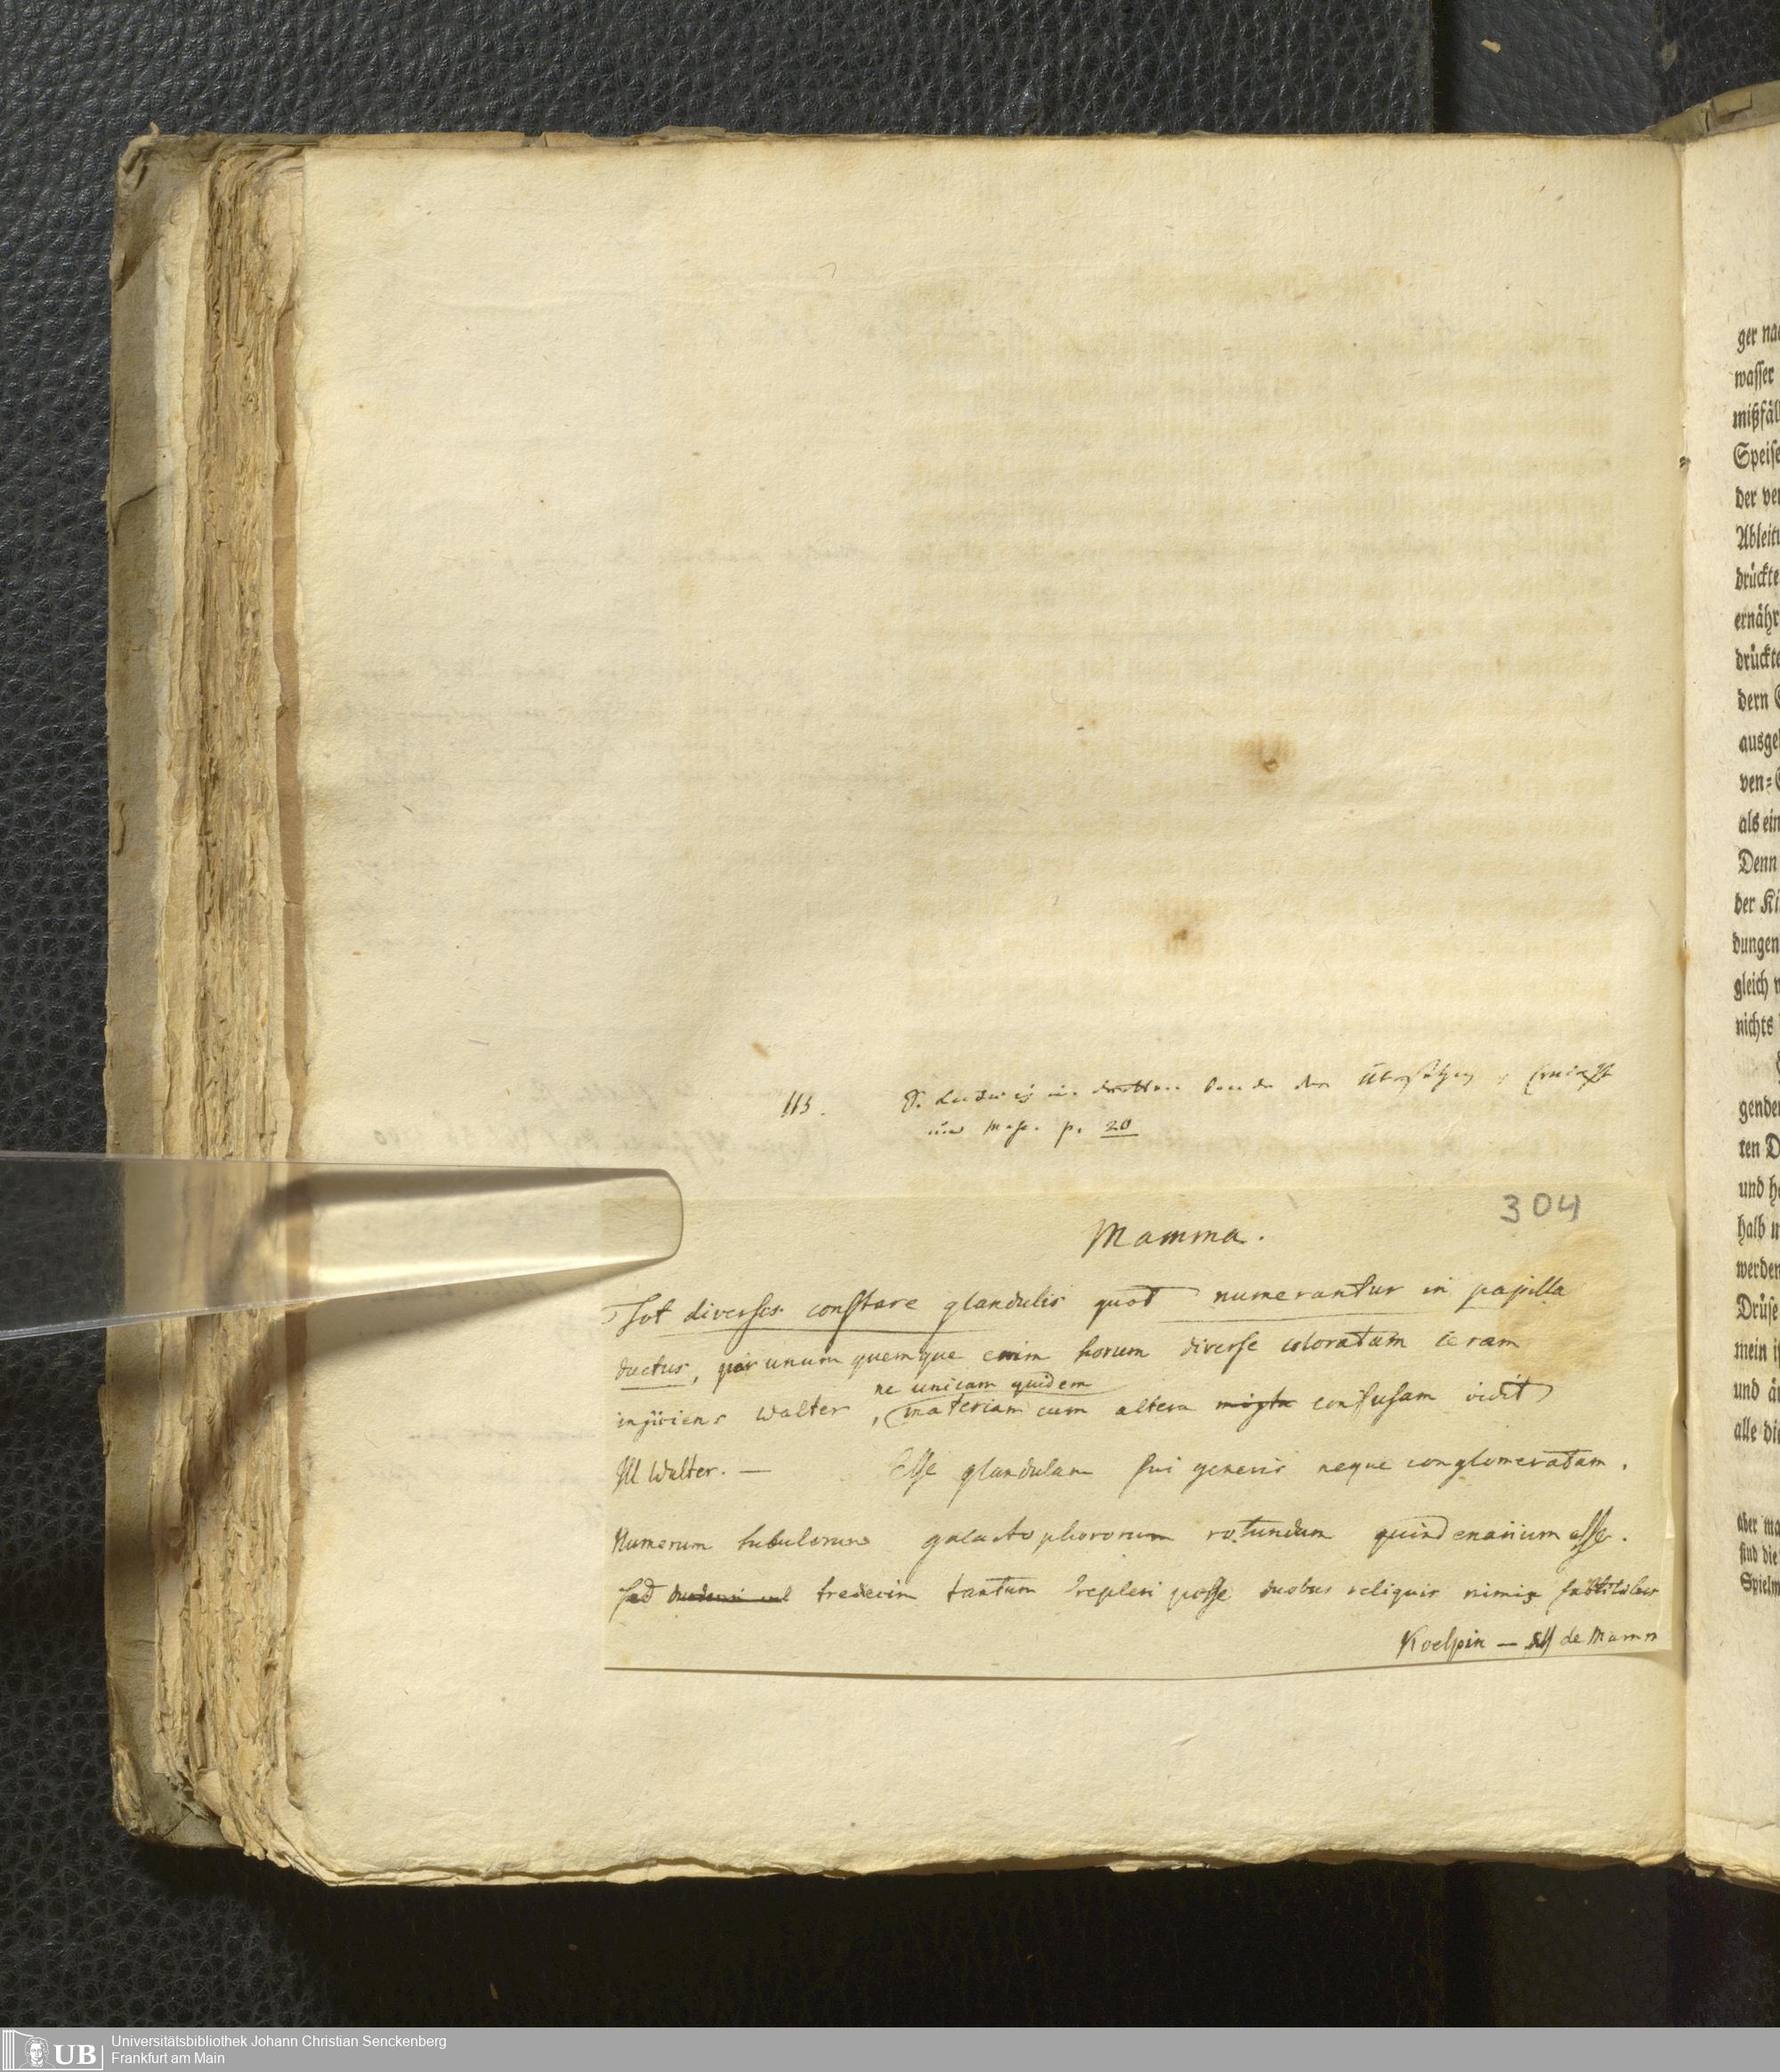 113. D. Ludwig im dritten Bande der
und M. p. 20
304
Mamma.
Tot diverses constare glandulis quot numerantur in papilla
ductus, per unum quemque enim horum diverse coloratam ceram
ne unicam quidem
injiciens Walter, (materiam cum altera mixta confusam vidit)
Ill Walter. — Esse glandulam sui generis neque conglomeratam.
Numerum tubulorum galactophororum rotundum quindenarium esse.
sed tredecim tantum repleri posse duobus reliquis nimis subtilibus
Koelpin — de Mamm
ger na
wasser
mißfäl
Speise
der ver
Ableitu
drückte
ernähr
drückte
dern
ausge
ven=
als ein
Denn
der Ki
dungen
gleich
nichts
gender
ren D
und he
halb
werden
Drüse
mein
und
alle die
aber ma
sind die
Spielm
UB
Universitätsbibliothek Johann Christian Senckenberg
Frankfurt am Main